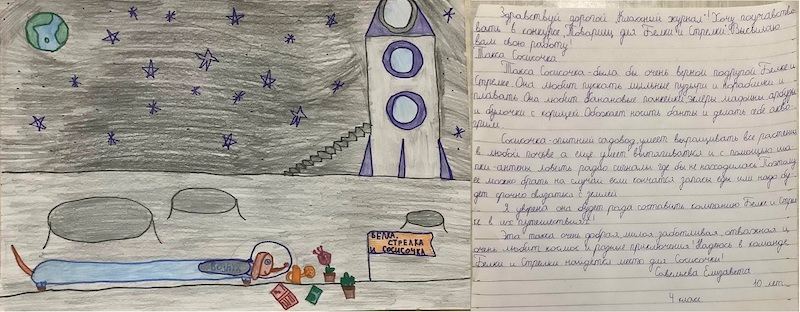 БЕЛКА,
СТРЕЛКА
И СОСИСОЧКА
Здравствуй дорогой „Классный журнал"! Хочу поучаство
вать в конкурсе „Товарищ для Белки и Стрелки". Высылаю
вам свою работу!
Такса Сосисочка
Такса Сосисочка была бы очень верной подругой Белке и
Стрелке. Она любит пускать мыльные пузыри и кораблики и
плавать. Она любит банановые панкейки, эклеры, мадлены, арбузы
и булочки с корицей. Обожает носить банты и делать себе аква
грим.
Сосисочка-опытный садовод, умеет выращивать все растения
в любой почве а еще умеет вытягиваться и с помощью ша
пки-антены ловить радио сигналы где бы не находилась. Поэтому
ее можно брать на случай если кончатся запасы еды или надо бу
дет срочно связаться с землей.
Я уверена она будет рада составить компанию Белке и Стрел
ке в их путешествиях!
Эта такса очень добрая, милая, заботливая, отважная и
очень любит космос и разные приключения! Надеюсь в команде
Белки и Стрелки найдется место для Сосисочки!
Савельева Елизавета
10 лет
4 класс